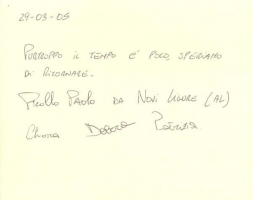 29-03-05
PURTROPPO IL TEMPO E' POCO, SPERIAMO
DI RITORNARE.
Paolo DA NOVI LIGURE (AL)
Chiara Debora Patrizia